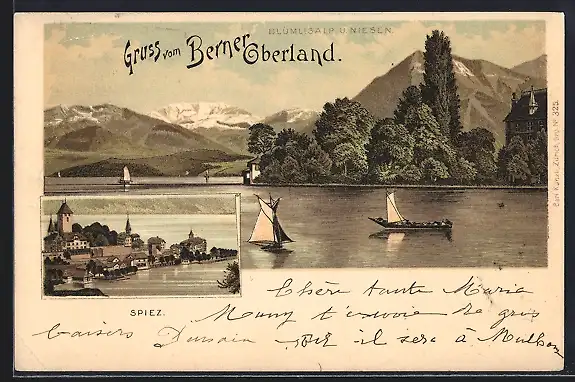 BLÜMLISALP U. NIESEN.
Gruss vom Berner Oberland.
Carl Künzli, Zürich, Dep. No 325.
SPIEZ.
Chère tante Maria
Many t'envoie de gros
baisers Demain soir il sera à Mulhouse